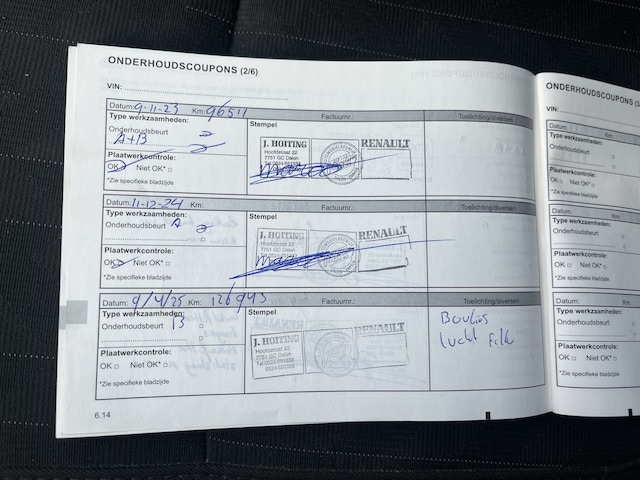 ONDERHOUDSCOUPONS (2/6)
VIN:
Datum: 9-11-23 Km: 96511 Factuurnr.: Toelichting/diversen
Type werkzaamheden:
Onderhoudsbeurt
A+B
Plaatwerkcontrole:
OK Niet OK*
*Zie specifieke bladzijde
Stempel
J. HOITING
Hoofdstraat 22
7751 GC Dalen
RENAULT
Datum: 11-12-24 Km: Factuurnr.: Toelichting/diversen
Type werkzaamheden:
Onderhoudsbeurt A
Plaatwerkcontrole:
OK Niet OK*
*Zie specifieke bladzijde
Stempel
J. HOITING
Hoofdstraat 22
7751 GC Dalen
RENAULT
Datum: 9/4/25 Km: 126943 Factuurnr.: Toelichting/diversen
Type werkzaamheden:
Onderhoudsbeurt B
Plaatwerkcontrole:
OK Niet OK*
*Zie specifieke bladzijde
J. HOITING
Hoofdstraat 22
7751 GC Dalen
RENAULT
Bougies
lucht Filter
6.14
ONDERHOUDSCOUPONS
VIN:
Datum: Km:
Type werkzaamheden:
Onderhoudsbeurt
Plaatwerkcontrole:
OK Niet OK*
*Zie specifieke bladzijde
Datum: Km:
Type werkzaamheden:
Onderhoudsbeurt
Plaatwerkcontrole:
OK Niet OK*
*Zie specifieke bladzijde
Datum: Km:
Type werkzaamheden:
Onderhoudsbeurt
Plaatwerkcontrole:
OK Niet OK*
*Zie specifieke bladzijde